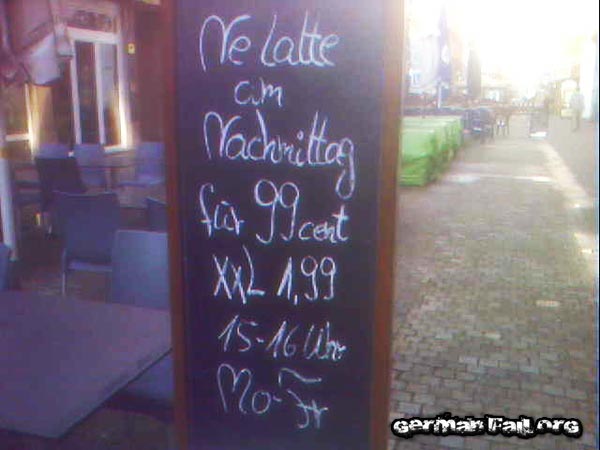 Ne Latte
am
Nachmittag
für 99 cent
XXL 1,99
15-16 Uhr
Mo-Fr
German Fail.org